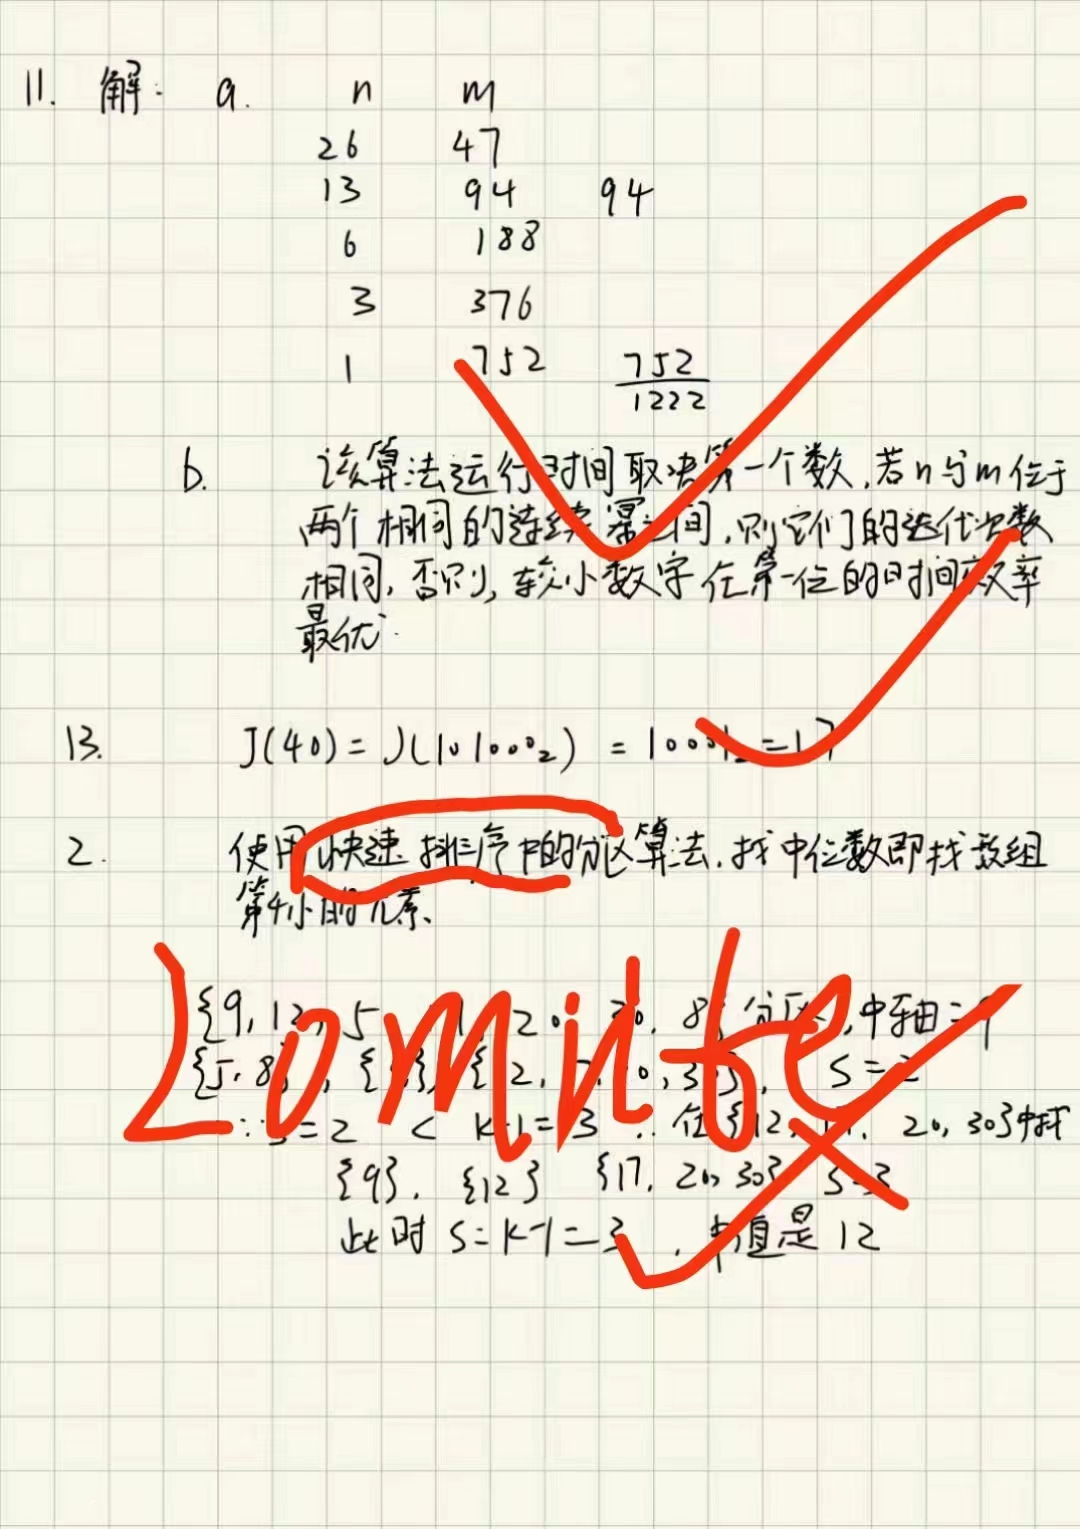 11. 解: a. n m
26 47
13 94 94
6 188
3 376
1 752 752
1222
b. 该算法运行时间取决第一个数,若n与m位于
两个相同的连续幂之间,则它们的迭代次数
相同,否则,较小数字在第一位的时间效率
最优.
13. J(40) = J(101000₂) = 10001₂ = 17
2. 使用快速排序中的分区算法,找中位数即找数组
第4小的元素.
{9, 12, 5, 20, 30, 8} 分区,中轴=9
{5, 8}, S=2
S=2 < k-1=3 ∴ 在{12, 20, 30}中找
{9}, {12} {17, 20, 30} S=3
此时 S=k-1=3, 中值是 12
Lomute